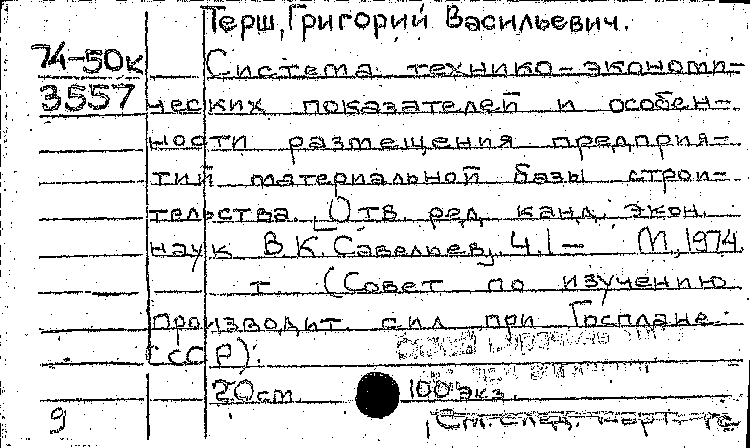 Терш, Григорий Васильевич.
74-50к Система технико-экономи-
3557 ческих показателей и особен-
ности размещения предприя-
тий материальной базы строи-
тельства. [Отв. ред. канд. экон.
наук В.К. Савельев]. Ч.1— М., 1974.
т. (Совет по изучению
производит. сил при Госплане
СССР).
20см. 100 экз.
9 См. след. карт